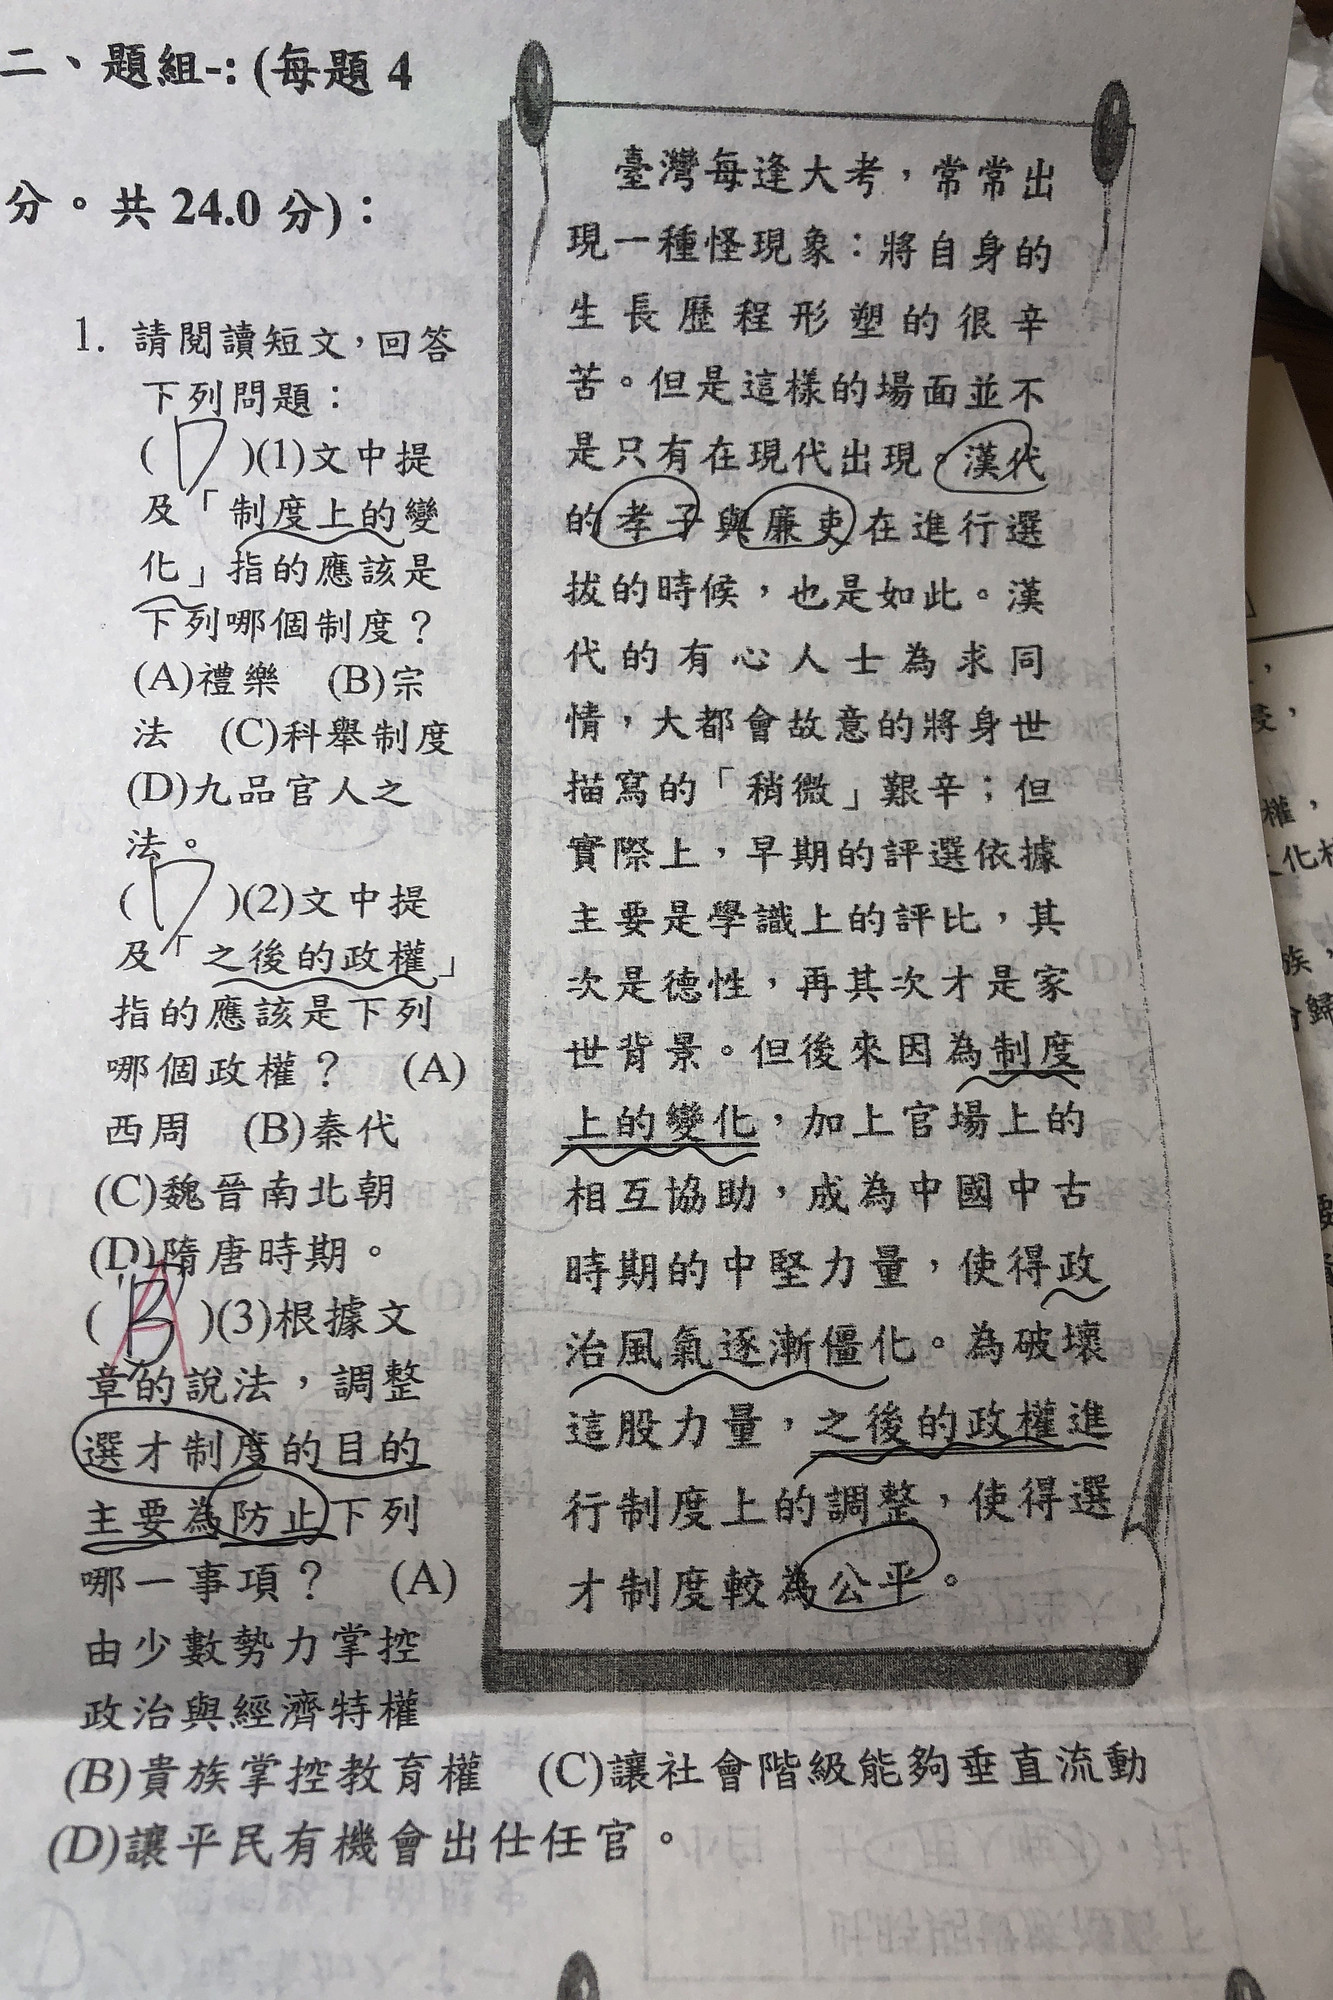 二、題組-：(每題 4
分。共 24.0 分)：
1. 請閱讀短文，回答
下列問題：
( D )(1)文中提
及「制度上的變
化」指的應該是
下列哪個制度？
(A)禮樂 (B)宗
法 (C)科舉制度
(D)九品官人之
法。
( D )(2)文中提
及「之後的政權」
指的應該是下列
哪個政權？ (A)
西周 (B)秦代
(C)魏晉南北朝
(D)隋唐時期。
( B A )(3)根據文
章的說法，調整
選才制度的目的
主要為防止下列
哪一事項？ (A)
由少數勢力掌控
政治與經濟特權
(B)貴族掌控教育權 (C)讓社會階級能夠垂直流動
(D)讓平民有機會出仕任官。
臺灣每逢大考，常常出
現一種怪現象：將自身的
生長歷程形塑的很辛
苦。但是這樣的場面並不
是只有在現代出現。漢代
的孝子與廉吏在進行選
拔的時候，也是如此。漢
代的有心人士為求同
情，大都會故意的將身世
描寫的「稍微」艱辛；但
實際上，早期的評選依據
主要是學識上的評比，其
次是德性，再其次才是家
世背景。但後來因為制度
上的變化，加上官場上的
相互協助，成為中國中古
時期的中堅力量，使得政
治風氣逐漸僵化。為破壞
這股力量，之後的政權進
行制度上的調整，使得選
才制度較為公平。